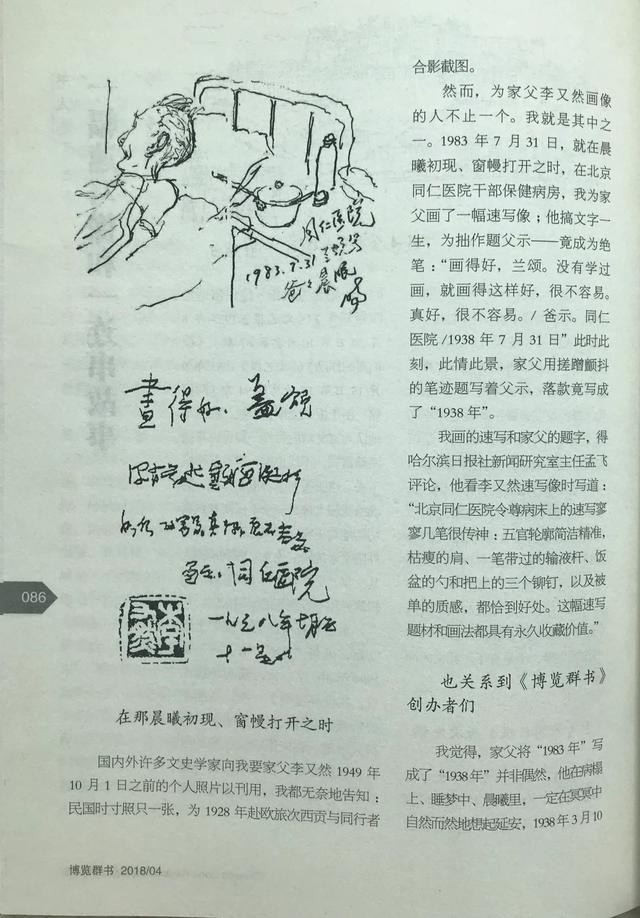 同仁医院
1983.7.31
爸爸晨
畫得好、兰颂
同仁医院
一九三八年七月三
十一日
086
在那晨曦初现、窗幔打开之时
国内外许多文史学家向我要家父李又然 1949 年
10 月 1 日之前的个人照片以刊用，我都无奈地告知：
民国时寸照只一张，为 1928 年赴欧旅次西贡与同行者
合影截图。
然而，为家父李又然画像
的人不止一个。我就是其中之
一。1983 年 7 月 31 日，就在晨
曦初现、窗幔打开之时，在北京
同仁医院干部保健病房，我为家
父画了一幅速写像；他搞文字一
生，为拙作题父示——竟成为绝
笔：“画得好，兰颂。没有学过
画，就画得这样好，很不容易。
真好，很不容易。/ 爸示。同仁
医院 /1938 年 7 月 31 日”此时此
刻，此情此景，家父用搓蹭颤抖
的笔迹题写着父示，落款竟写成
了“1938 年”。
我画的速写和家父的题字，得
哈尔滨日报社新闻研究室主任孟飞
评论，他看李又然速写像时写道：
“北京同仁医院令尊病床上的速写寥
寥几笔很传神：五官轮廓简洁精准，
枯瘦的肩、一笔带过的输液杆、饭
盆的勺和把上的三个铆钉，以及被
单的质感，都恰到好处。这幅速写
题材和画法都具有永久收藏价值。”
也关系到《博览群书》
创办者们
我觉得，家父将“1983 年”写
成了“1938 年”并非偶然，他在病榻
上、睡梦中、晨曦里，一定在冥冥中
自然而然地想起延安，1938 年 3 月 10
博览群书 2018/04